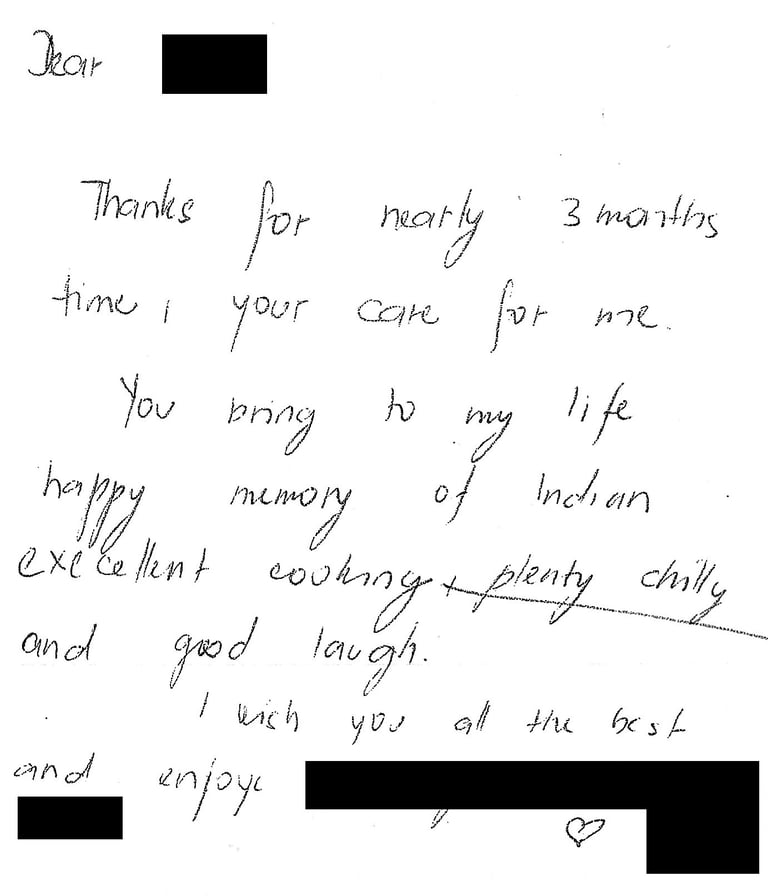 Dear
Thanks for nearly 3 months
time, your care for me.
You bring to my life
happy memory of Indian
excellent cooking, plenty chilly
and good laugh.
I wich you all the best
and enjoye